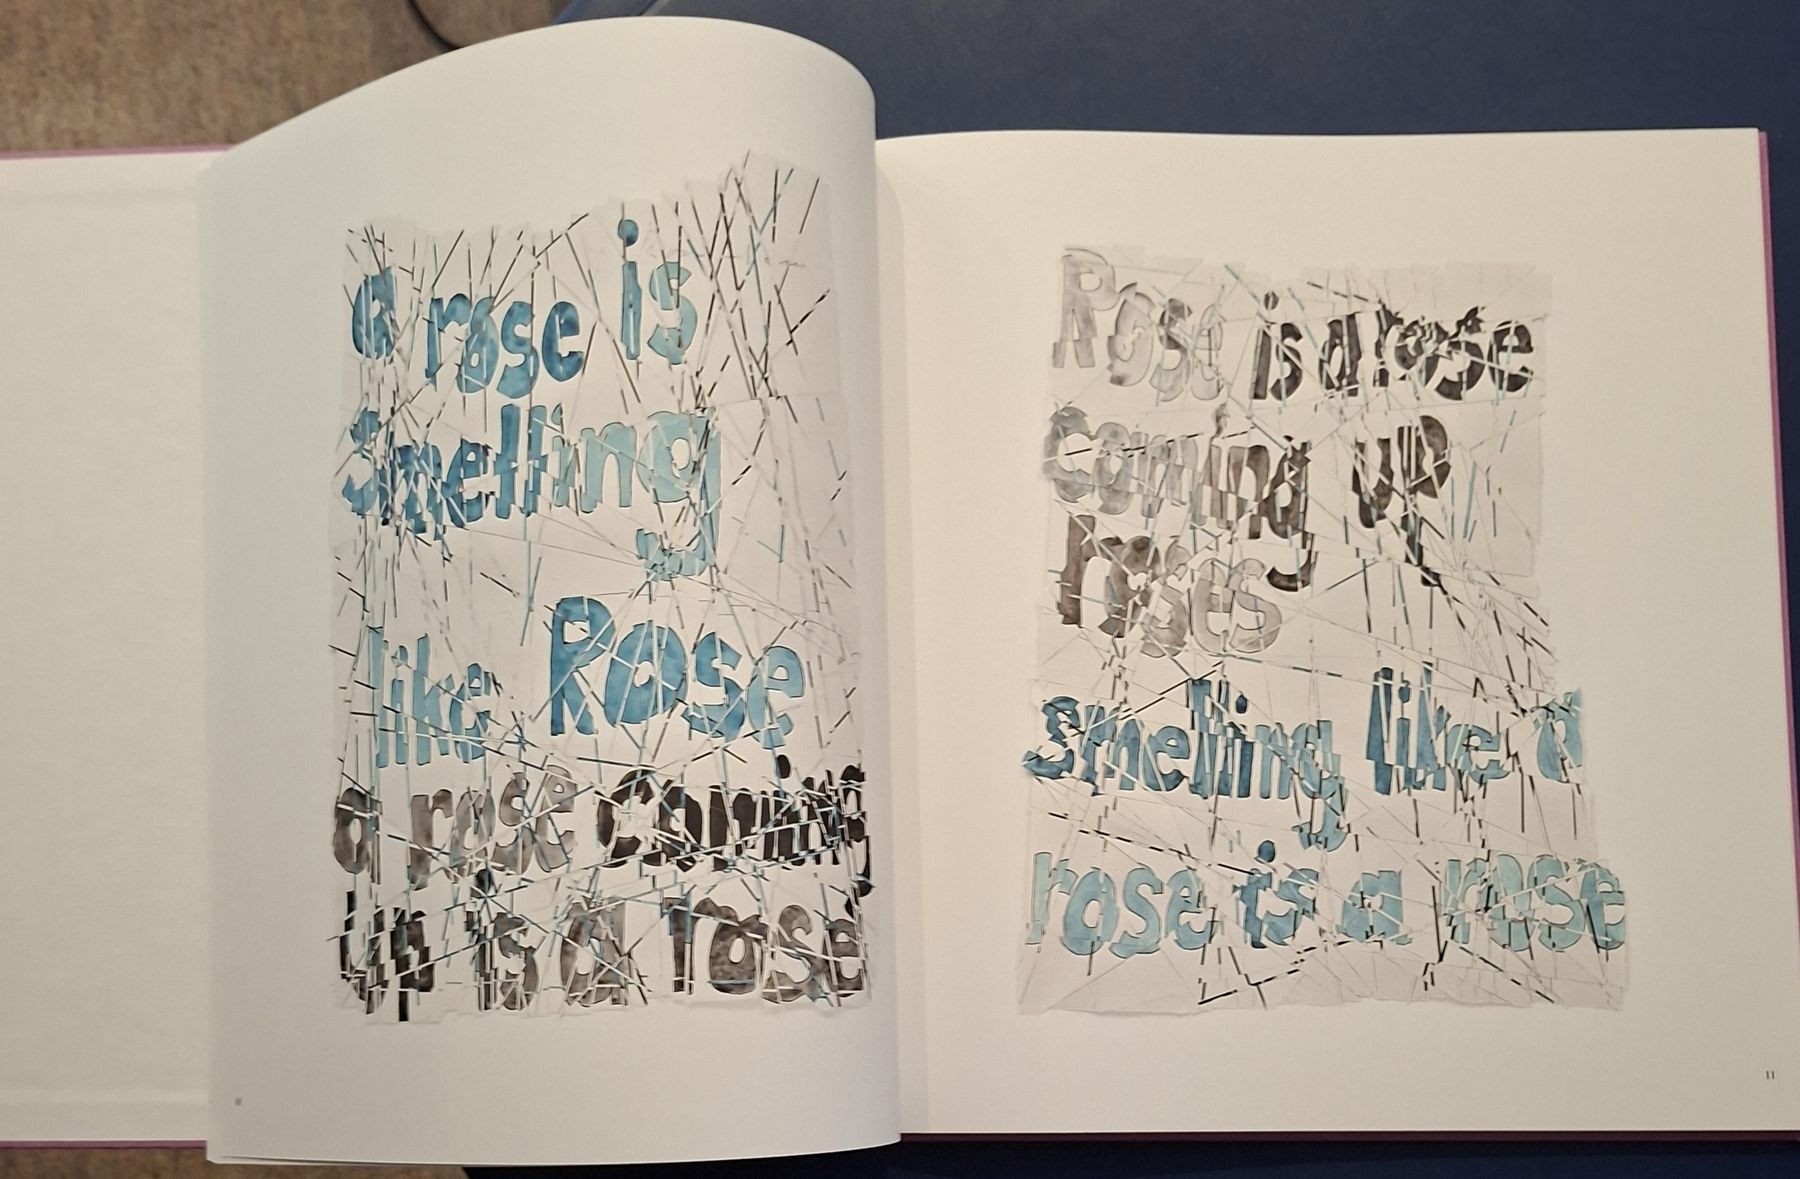 a rose is
smelling
like Rose
a rose coming
up is a rose
Rose is a rose
Coming up
roses
smelling like a
rose is a rose
11